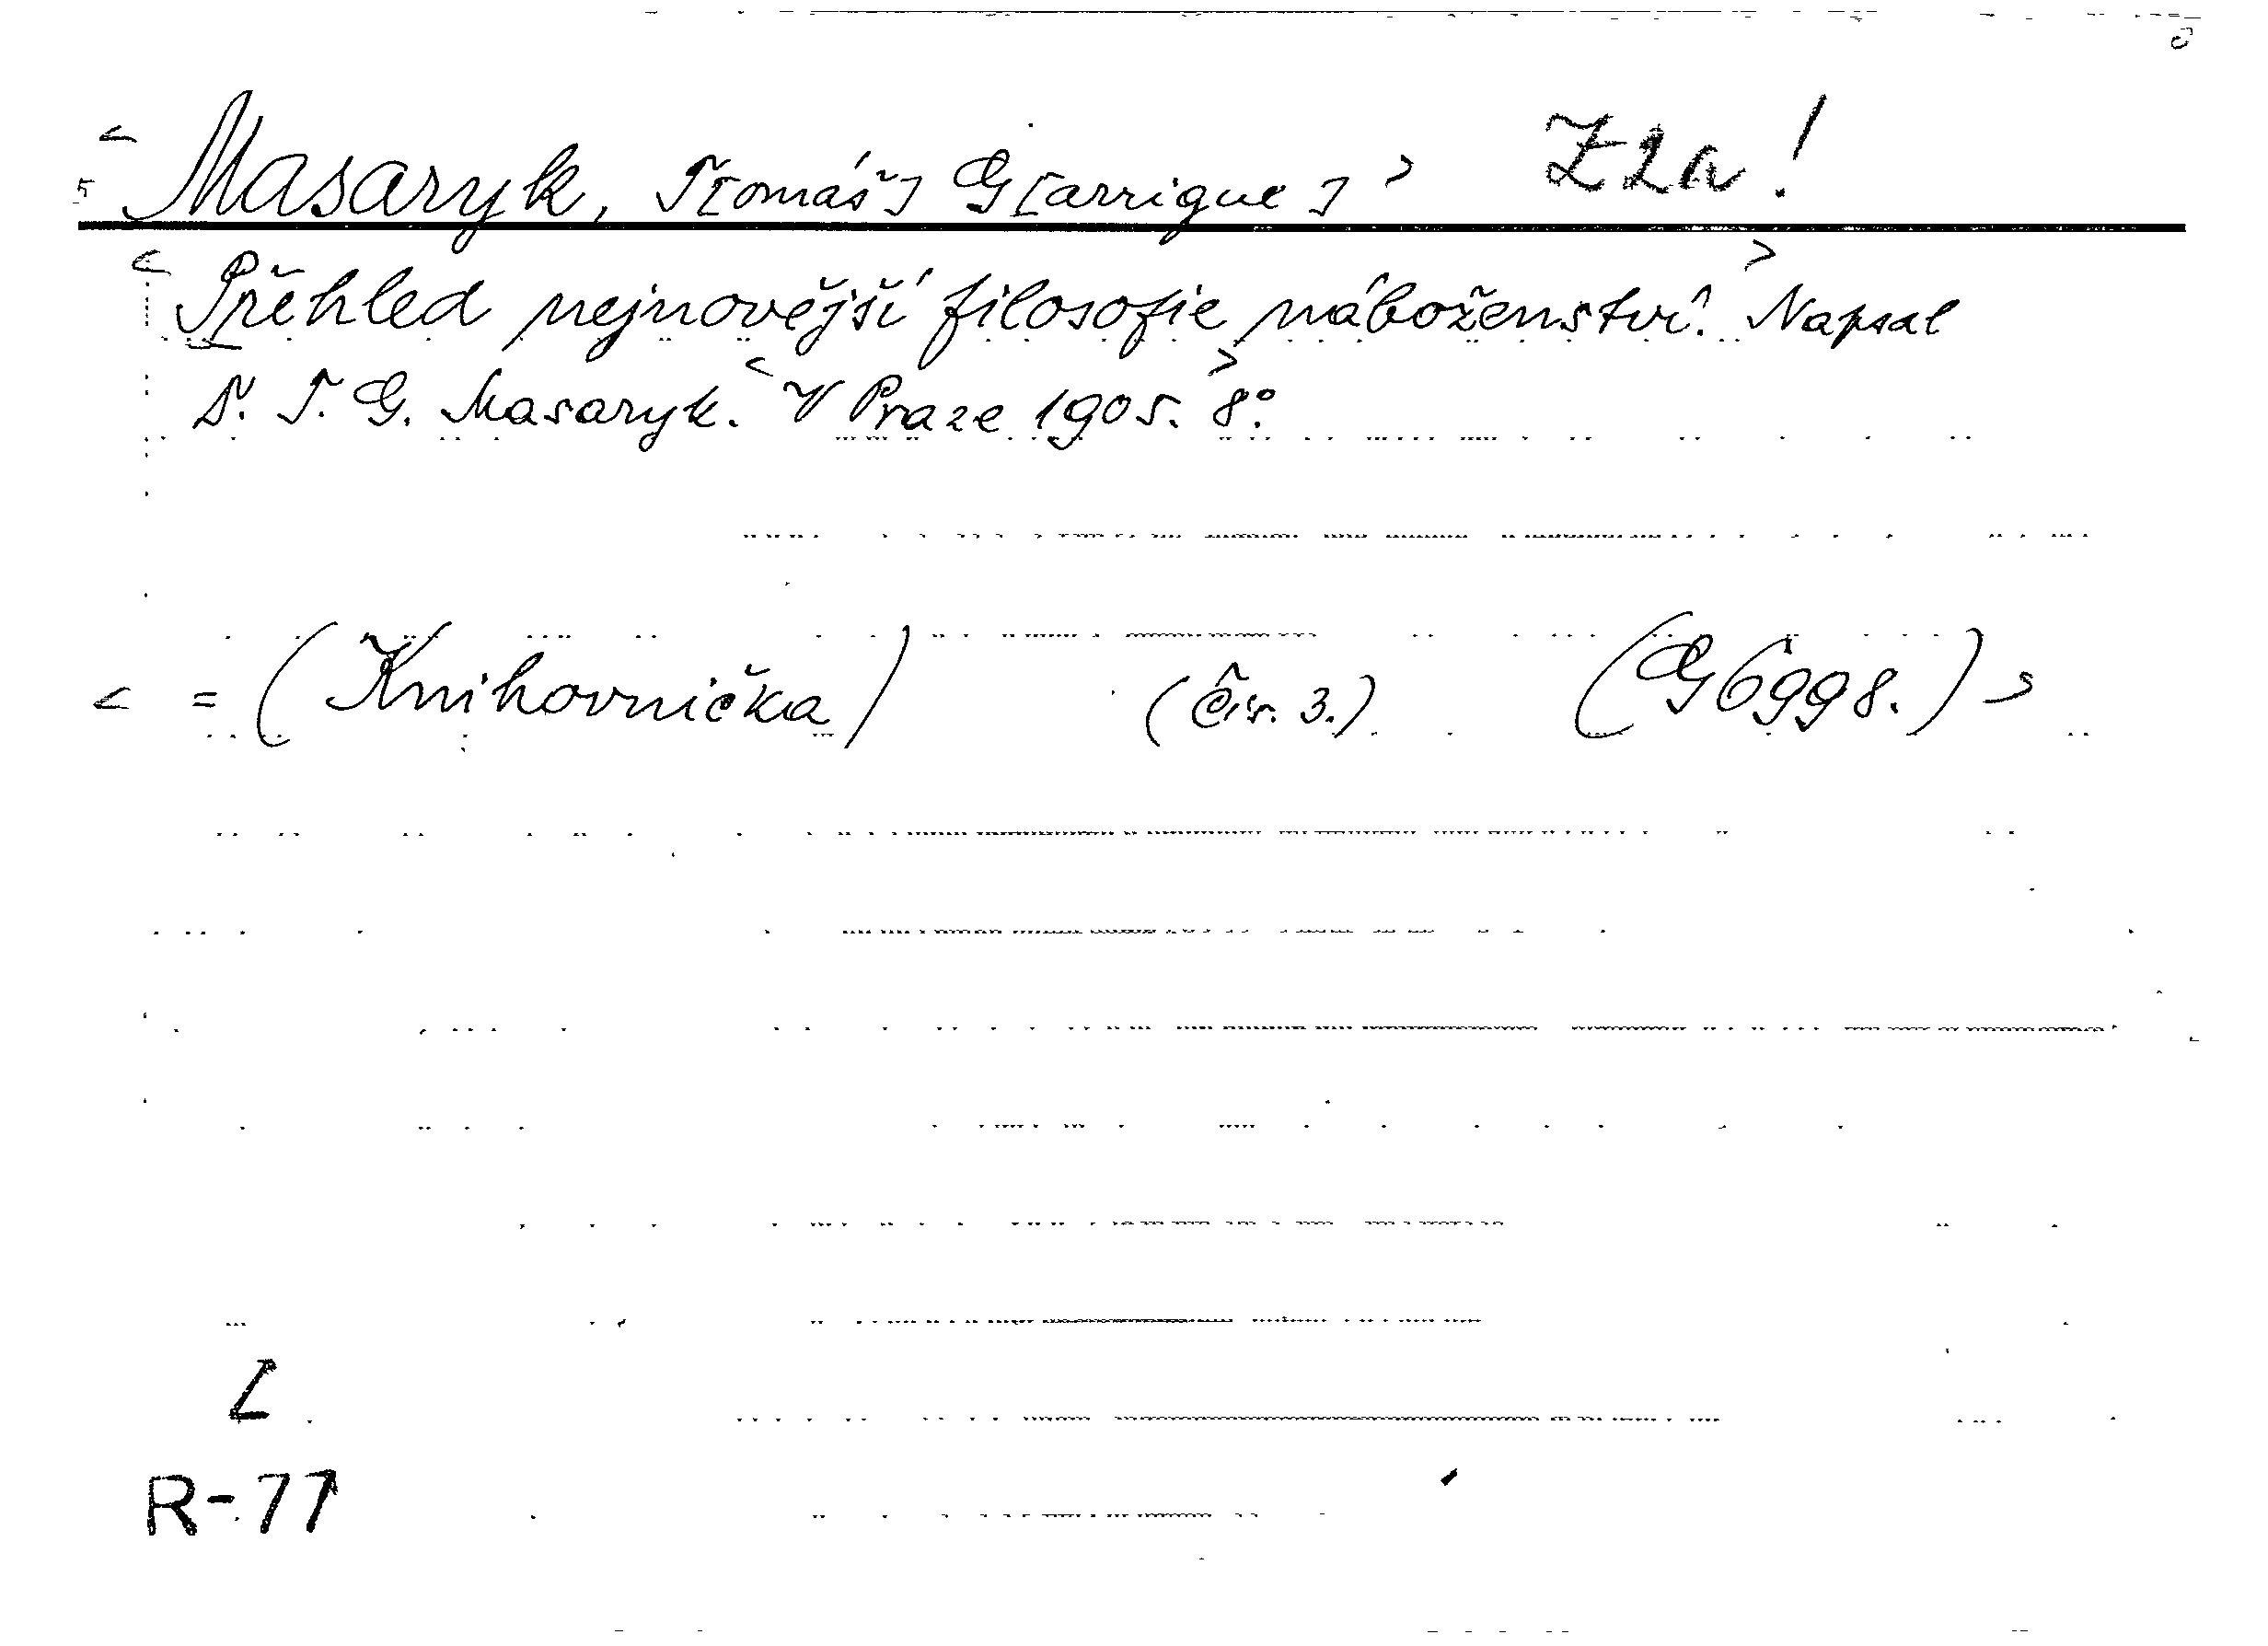 < Masaryk, T[omáš] G[arrigue] > Z2a!
< Přehled nejnovější filosofie náboženství. > Napsal
D. T. G. Masaryk. < V Praze 1905. > 8°.
< = (Knihovnička) (Čís. 3.) (G 6998.) >
L
R-77